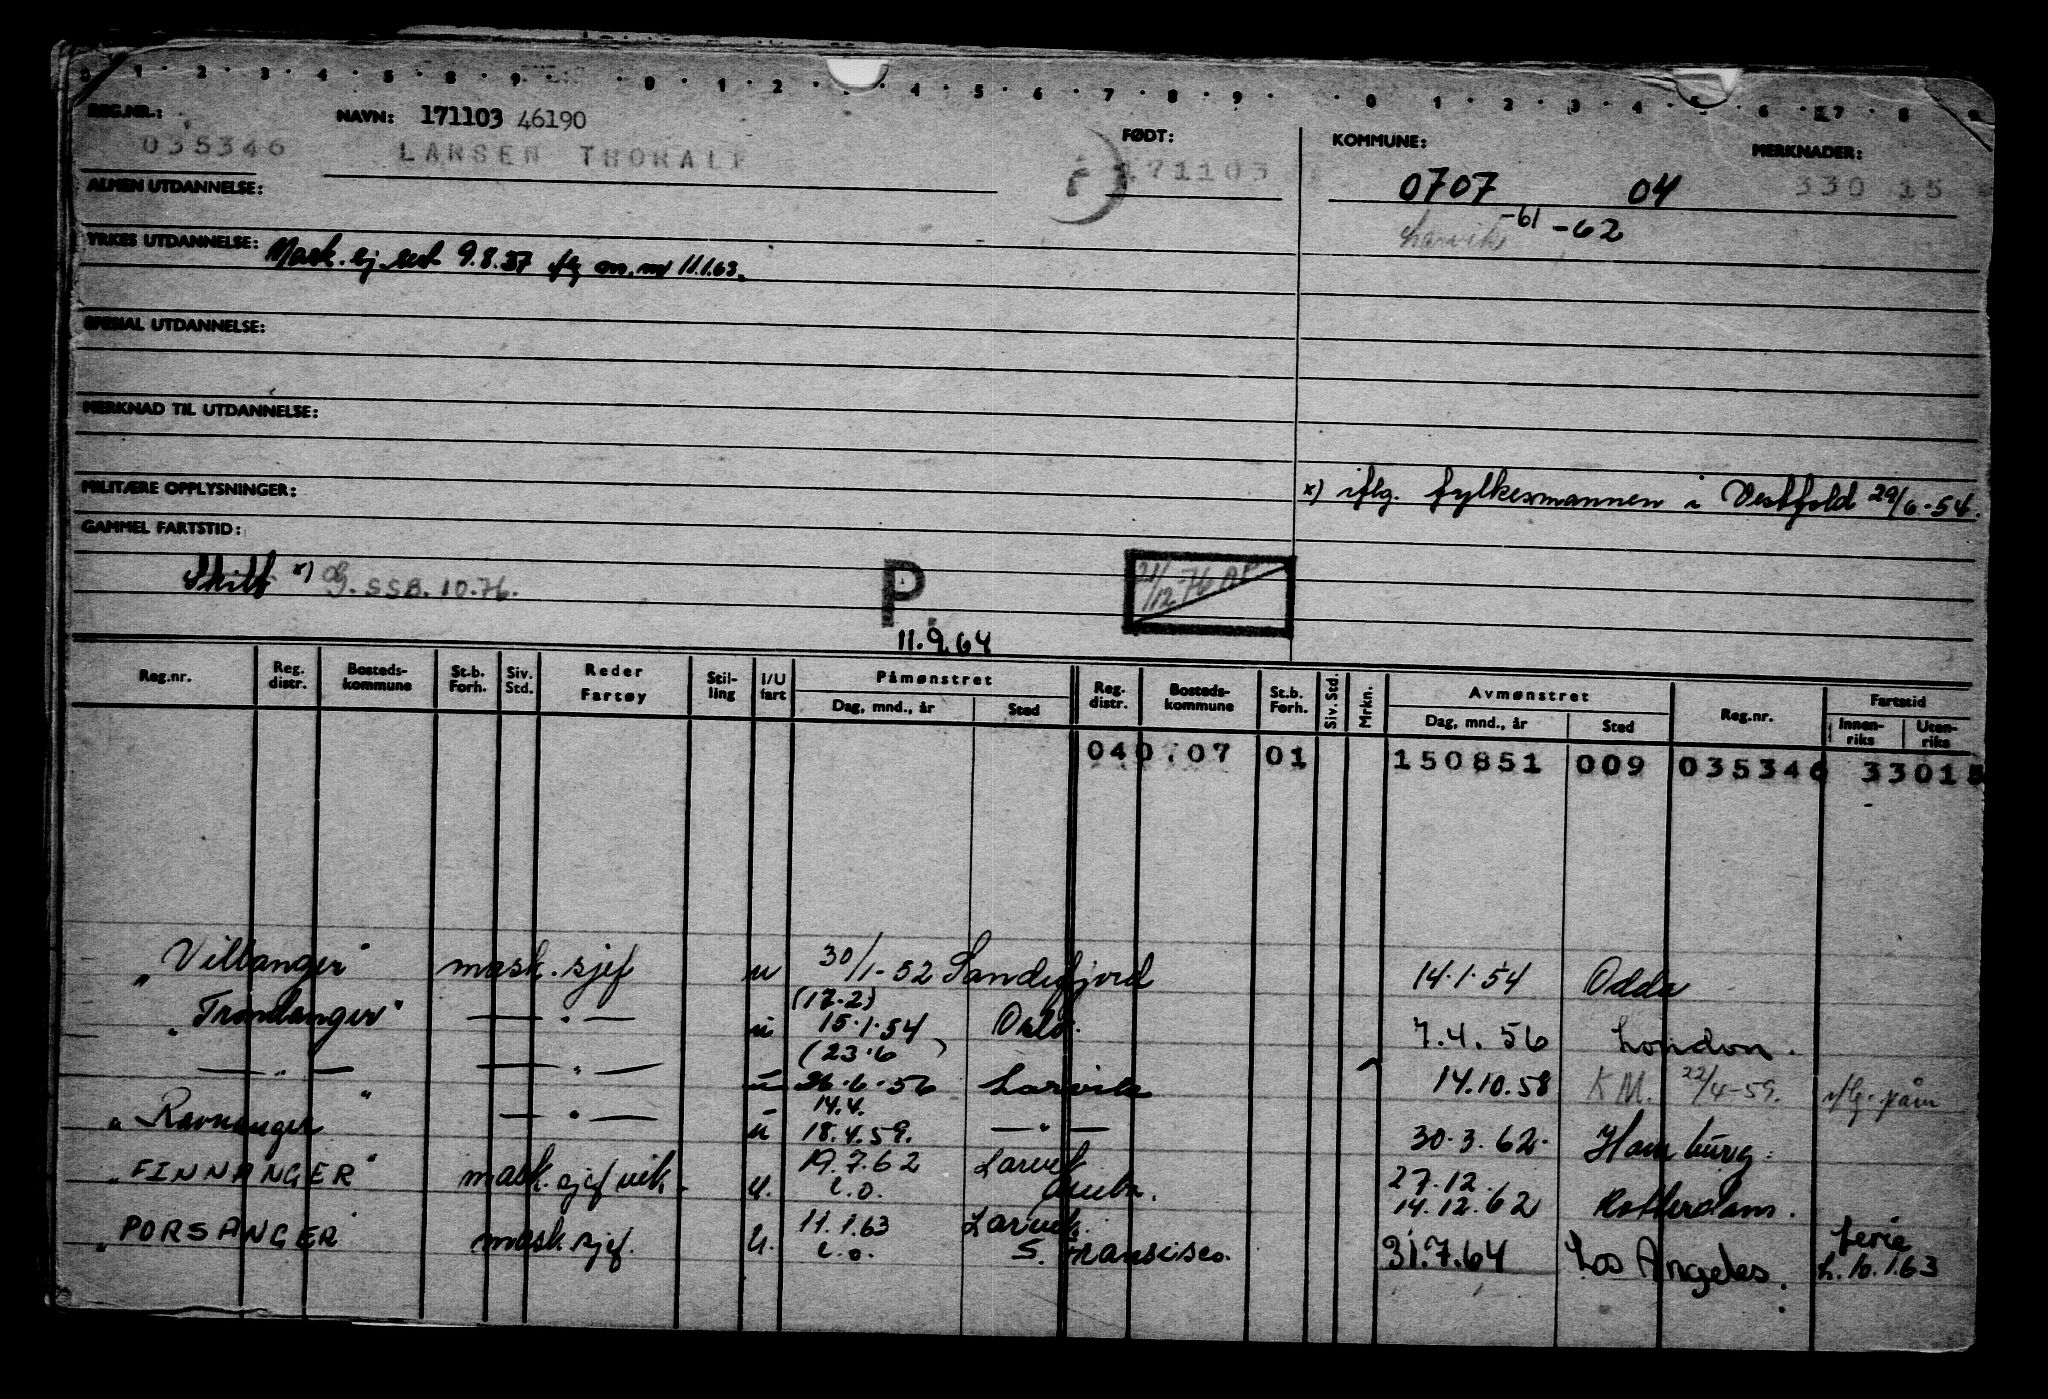 0 1 2 3 4 5 6 7 8 9 0 1 2 4 5 6 7 8 9 0 1 2 3 4 5 6 7 8
REG.NR.: NAVN: 171103 46190 FØDT: KOMMUNE: MERKNADER:
035346 LARSEN THORALF 171103 0707 04 330 15
ALMEN UTDANNELSE: Larvik -61 -62
YRKES UTDANNELSE: Mask.sj. sert 9.8.37 iflg om.m/ 11.1.63.
SPESIAL UTDANNELSE:
MERKNAD TIL UTDANNELSE:
MILITÆRE OPPLYSNINGER: x) iflg. fylkesmannen i Vestfold 29/6-54.
GAMMEL FARTSTID:
Skilt x) og. SSB. 10.76. P. 21/12-76
11.9.64
Reg.nr. Reg. distr. Bosteds-kommune St.b. Forh. Siv. Std. Reder Fartøy Stil-ling I/U fart Påmønstret Dag, mnd., år Sted Reg. distr. Bosteds-kommune St.b. Forh. Siv. Std. Mrkn. Avmønstret Dag, mnd., år Sted Reg.nr. Fartstid Innen-riks Uten-riks
040.07 01 150851 009 035346 33015
"Villanger" mask.sjef u 30/1-52 Sandefjord 14.1.54 Odda
(17.2)
"Trondanger" —"— u 15.1.54 Oslo. 7.4.56 London.
(23.6 )
—"— —"— u 26.6.56 Larvik 14.10.58 K M. 22/4-59. iflg. påm
14.4.
"Ravnanger" —"— u 18.4.59. —"— 30.3.62. Hamburg.
"FINNANGER" mask.sjef vik. u. 19.7.62 Larvik 27.12.
i.o. 14.12.62 Rotterdam.
"PORSANGER" mask.sjef. u. 11.1.63 Larvik. ferie
i.o. S. Fransisco. 31.7.64 Los Angeles. 10.1.63